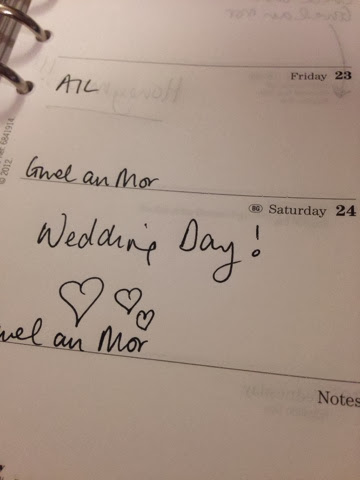 Friday 23
A/L
Gwel an Mor
6841914
© 2012
BG Saturday 24
Wedding Day!
wel an Mor
Notes